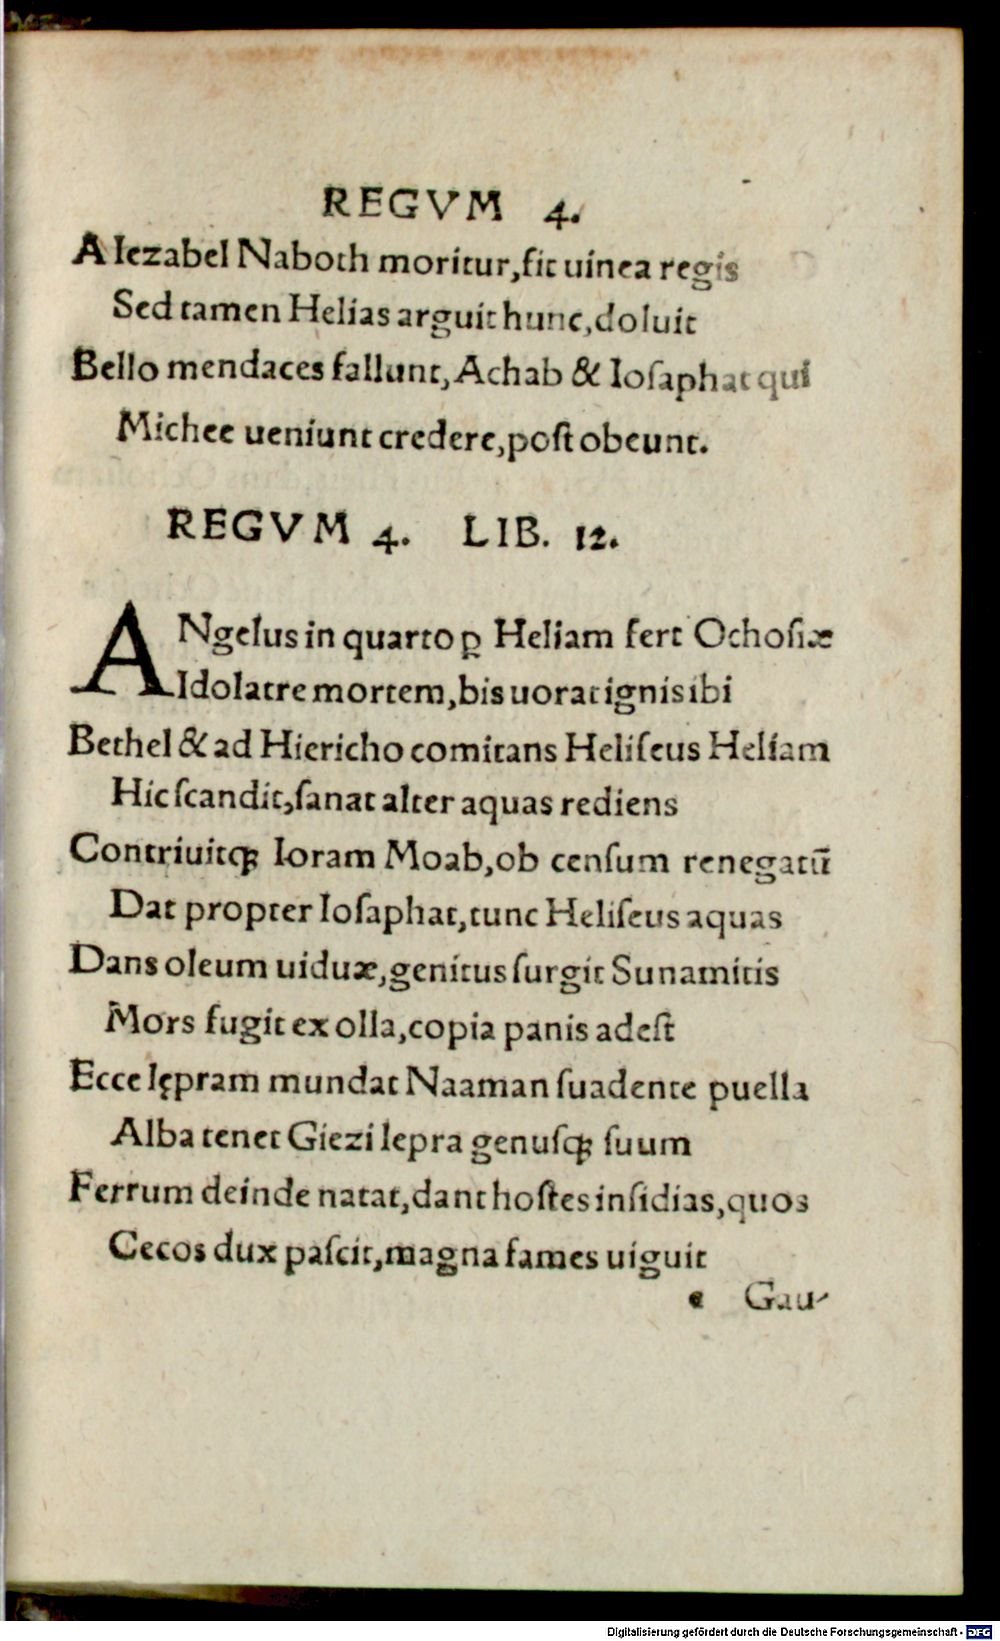 REGVM 4.
A Iezabel Naboth moritur,fit uinea regis
Sed tamen Helias arguit hunc,doluit
Bello mendaces fallunt, Achab & Ioſaphat qui
Michee ueniunt credere,poſt obeunt.
REGVM 4. LIB. 12.
ANgelus in quarto ꝑ Heliam fert Ochoſiæ
Idolatre mortem,bis uorat ignis ibi
Bethel & ad Hiericho comitans Heliſeus Heliam
Hic ſcandit,ſanat alter aquas rediens
Contriuitqꝫ Ioram Moab,ob cenſum renegatū
Dat propter Ioſaphat,tunc Heliſeus aquas
Dans oleum uiduæ,genitus ſurgit Sunamitis
Mors fugit ex olla,copia panis adeſt
Ecce lępram mundat Naaman ſuadente puella
Alba tenet Giezi lepra genuſqꝫ ſuum
Ferrum deinde natat,dant hoſtes inſidias,quos
Cecos dux paſcit,magna fames uiguit
e Gau-
Digitalisierung gefördert durch die Deutsche Forschungsgemeinschaft - DFG